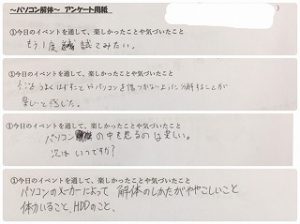 ～パソコン解体～ アンケート用紙
①今日のイベントを通して、楽しかったことや気づいたこと
もう1度 試してみたい。
①今日のイベントを通して、楽しかったことや気づいたこと
パソコンを傷つけないように分解することが
楽しいと感じた。
①今日のイベントを通して、楽しかったことや気づいたこと
パソコン の中を見るのは楽しい。
次はいつですか?
①今日のイベントを通して、楽しかったことや気づいたこと
パソコンのメーカーによって 解体のしかたがややこしいこと
体力いること、HDDのこと、